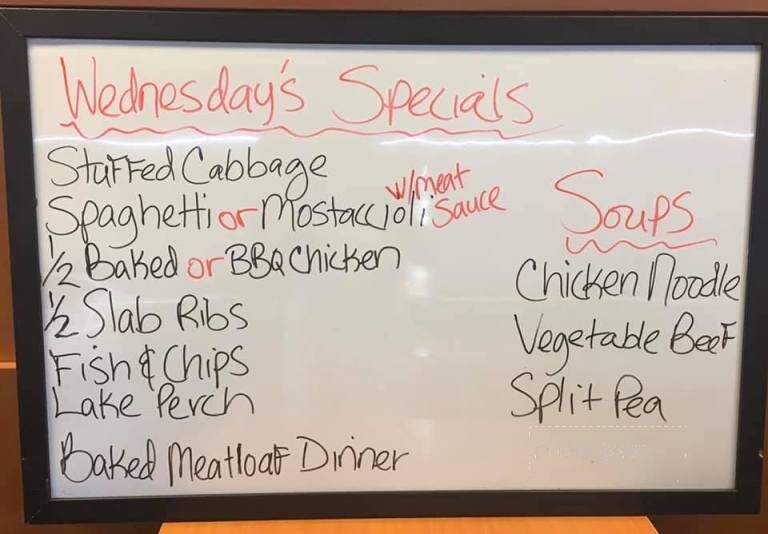 Wednesday's Specials
Stuffed Cabbage
Spaghetti or Mostaccioli w/meat Sauce
1/2 Baked or BBQ Chicken
1/2 Slab Ribs
Fish & Chips
Lake Perch
Baked Meatloaf Dinner
Soups
Chicken Noodle
Vegetable Beef
Split Pea